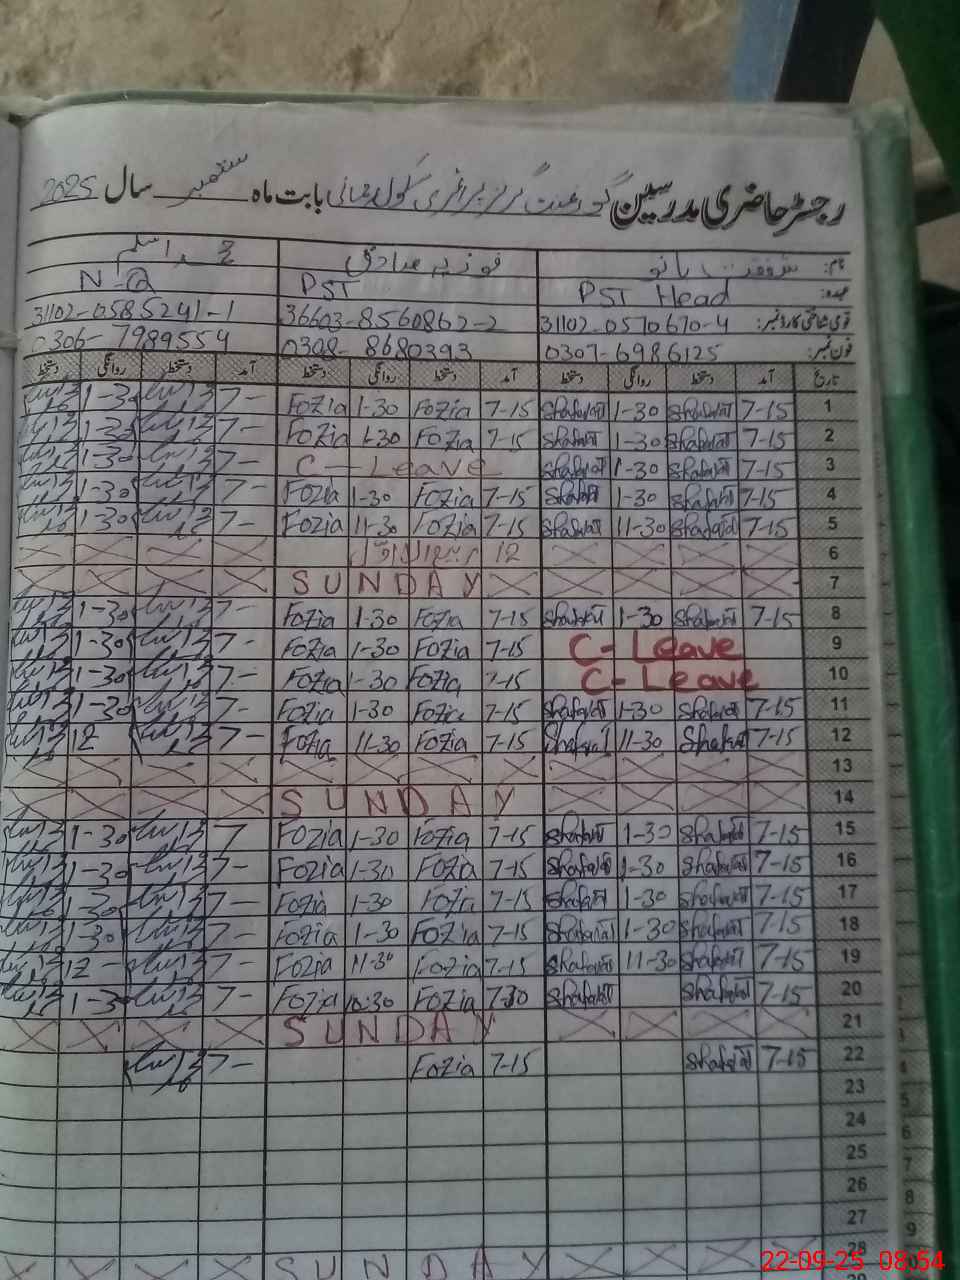 رجسٹر حاضری مدرسین گورنمنٹ گرلز پرائمری سکول بابت ماہ ستمبر سال 2025
نام: شفقت بانو فوزیہ محمد اسلم
عہدہ: PST Head PST N-Q
قومی شناختی کارڈ نمبر: 31102-0570670-4 36603-8560862-2 31102-0585241-1
فون نمبر: 0307-6986125 0308-8680393 0306-7989554
تاریخ آمد دستخط روانگی دستخط آمد دستخط روانگی دستخط آمد دستخط روانگی دستخط
1 7-15 Shafqat 1-30 Shafqat 7-15 Fozia 1-30 Fozia 7- 1-30
2 7-15 Shafqat 1-30 Shafqat 7-15 Fozia 1-30 Fozia 7- 1-30
3 7-15 Shafqat 1-30 Shafqat C-Leave 7- 1-30
4 7-15 Shafqat 1-30 Shafqat 7-15 Fozia 1-30 Fozia 7- 1-30
5 7-15 Shafqat 11-30 Shafqat 7-15 Fozia 11-30 Fozia 7- 1-30
6 12 ربیع الاول
7 SUNDAY
8 7-15 Shafqat 1-30 Shafqat 7-15 Fozia 1-30 Fozia 7- 1-30
9 C-Leave 7-15 Fozia 1-30 Fozia 7- 1-30
10 C-Leave 7-15 Fozia 1-30 Fozia 7- 1-30
11 7-15 Shafqat 1-30 Shafqat 7-15 Fozia 1-30 Fozia 7- 1-30
12 7-15 Shafqat 11-30 Shafqat 7-15 Fozia 11-30 Fozia 7- 12
13
14 SUNDAY
15 7-15 Shafqat 1-30 Shafqat 7-15 Fozia 1-30 Fozia 7 1-30
16 7-15 Shafqat 1-30 Shafqat 7-15 Fozia 1-30 Fozia 7- 1-30
17 7-15 Shafqat 1-30 Shafqat 7-15 Fozia 1-30 Fozia 7- 1-30
18 7-15 Shafqat 1-30 Shafqat 7-15 Fozia 1-30 Fozia 7- 1-30
19 7-15 Shafqat 11-30 Shafqat 7-15 Fozia 11-30 Fozia 7- 12-
20 7-15 Shafqat Shafqat 7-30 Fozia 10:30 Fozia 7- 1-30
21 SUNDAY
22 7-15 Shafqat 7-15 Fozia 7-
23
24
25
26
27
28 SUNDAY
22-09-25 08:54